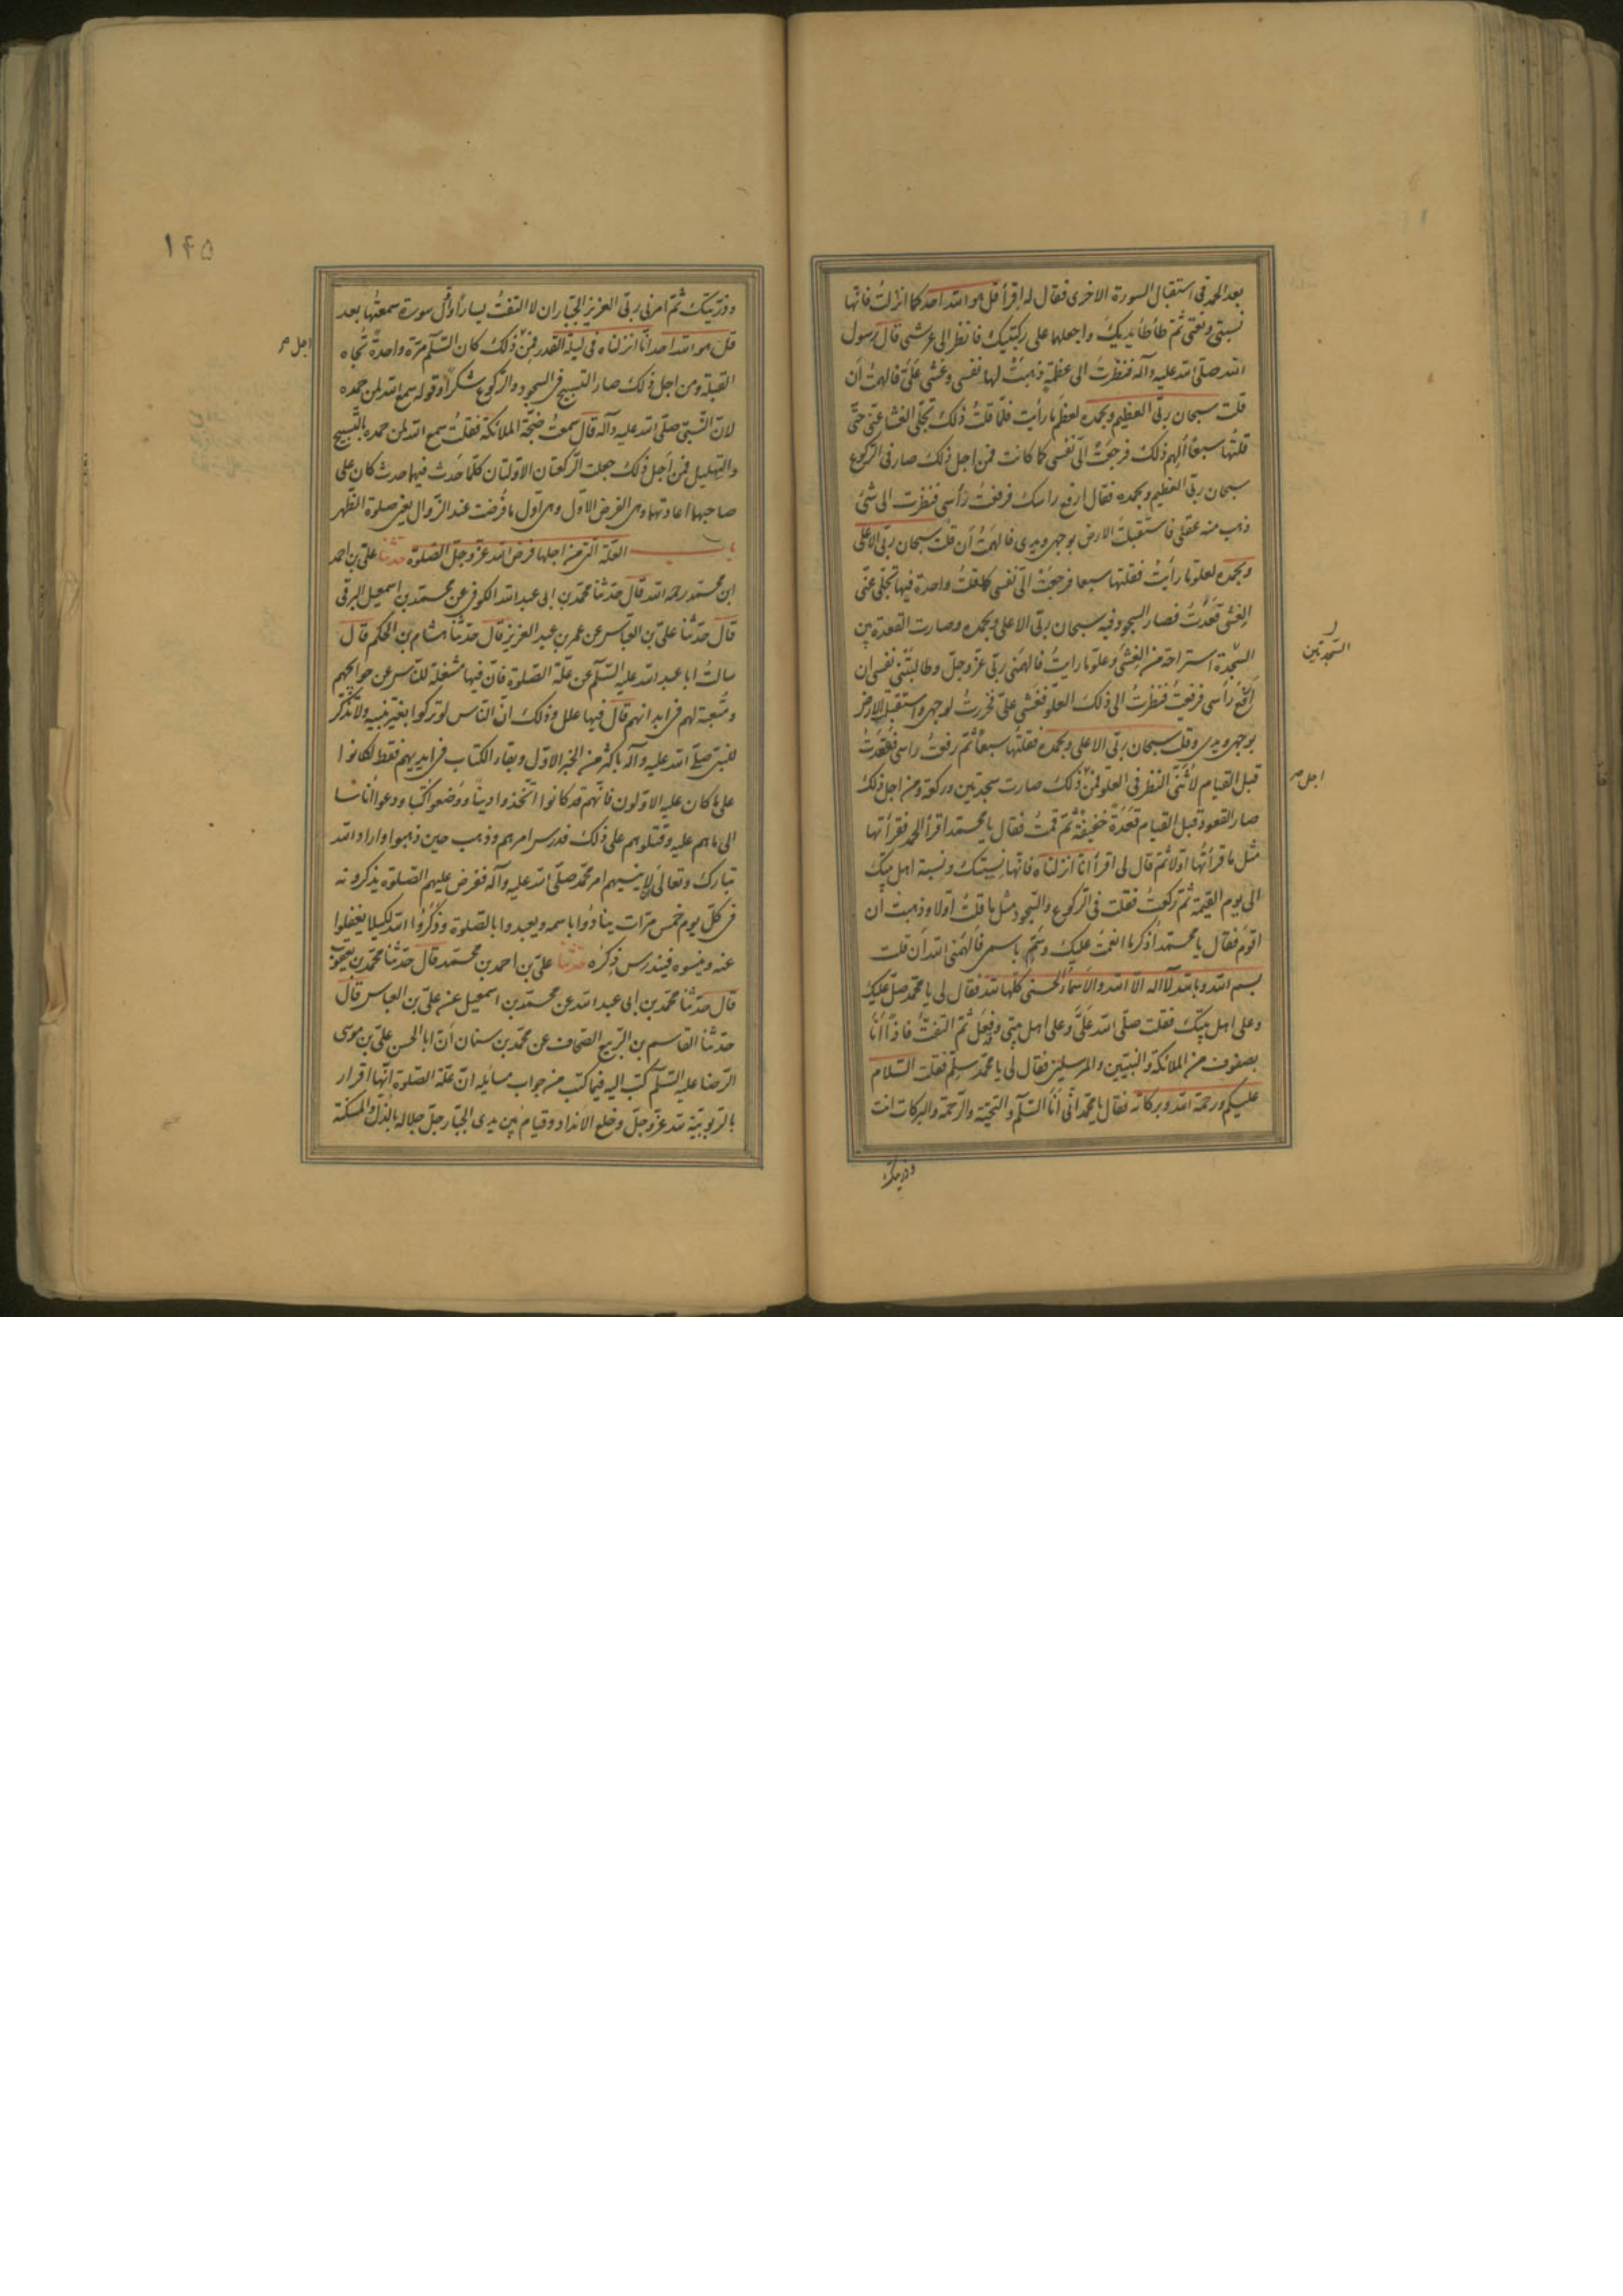 بعد الحمد فى استقبال السورة الاخرى فقال له اقرأ قل هو الله احد كما انزلت فانها
نسبتى ونعتى ثم طأطأ يديك واجعلها على ركبتيك فانظر الى عرشى قال رسول
الله صلى الله عليه وآله فنظرت الى عظمة ذهبت لها نفسى وغشى علىّ فالهمت أن
قلت سبحان ربى العظيم وبحمده لعظم ما رأيت فلما قلت ذلك تجلى الغشى عنى حتى
قلتها سبعا اُلهم ذلك فرجعت الىّ نفسى كما كانت فمن اجل ذلك صار فى الركوع
سبحان ربى العظيم وبحمده فقال ارفع راسك فرفعت رأسى فنظرت الى شئ
ذهب منه عقلى فاستقبلت الارض بوجهى ويدى فالهمت أن قلت سبحان ربى الاعلى
وبحمده لعلو ما رأيت فقلتها سبعا فرجعت الىّ نفسى كلما قلت واحدة فيها تجلى عنى
الغشى فقعدت فصار السجود فيه سبحان ربى الاعلى وبحمده وصارت القعدة بين
السجدة استراحة من الغشى وعلو ما رايت فالهمنى ربى عز وجل وطالبتنى نفسى ان
السجدتين
ارفع رأسى فرفعت فنظرت الى ذلك العلو فغشى علىّ فخررت لوجهى واستقبل الارض
بوجهى ويدى وقلت سبحان ربى الاعلى وبحمده فقلتها سبعا ثم رفعت راسى فقعدت
قبل القيام لاثنى النظر فى العلو فمن ذلك صارت سجدتين وركعة ومن اجل ذلك
اجل صح
صار القعود قبل القيام قعدة خفيفة ثم قمت فقال يا محمد اقرأ الحمد فقرأتها
مثل ما قرأتها اولا ثم قال لى اقرأ انا انزلناه فانها نسبتك ونسبة اهل بيتك
الى يوم القيمة ثم ركعت فقلت فى الركوع والسجود مثل ما قلت اولا وذهبت ان
اقوم فقال يا محمد اذكر ما انعمت عليك وسم باسمى فالهمنى الله ان قلت
بسم الله وبالله لا اله الا الله والاسماء الحسنى كلها لله فقال لى يا محمد صل عليك
وعلى اهل بيتك فقلت صلى الله علىّ وعلى اهل بيتى وفعل ثم التفت فاذا انا
بصفوف من الملائكة والنبيين والمرسلين فقال لى يا محمد سلم فقلت السلام
عليكم ورحمة الله وبركاته فقال يا محمد انى أنا السلم والتحية والرحمة والبركات انت
وذريتك
۱۴۵
وذريتك ثم امرنى ربى العزيز الجبار ان لا التفت يسارا واول سورة سمعتها بعد
قل هو الله احد انا انزلناه فى ليلة القدر فمن ذلك كان السلم مرة واحدة تجاه
اجل صح
القبلة ومن اجل ذلك صار التسبيح فى السجود والركوع شكرا وقوله سمع الله لمن حمده
لان النبى صلى الله عليه وآله قال سمعت ضجة الملائكة فقلت سمع الله لمن حمده بالتسبيح
والتهليل فمن اجل ذلك جعلت الركعتان الاولتان كلما حدث فيها حدث كان على
صاحبها اعادتها وهى الفرض الاول وهى اول ما فرضت عند الزوال يعنى صلوة الظهر
باب العلة التى من اجلها فرض الله عز وجل الصلوة حدثنا على بن احمد
ابن محمد رحمه الله قال حدثنا محمد بن ابى عبد الله الكوفى عن محمد بن اسمعيل البرقى
قال حدثنا على بن العباس عن عمر بن عبد العزيز قال حدثنا هشام بن الحكم قال
سالت ابا عبد الله عليه السلم عن علة الصلوة فان فيها مشغلة للناس عن حوايجهم
ومتعبة لهم فى ابدانهم قال فيها علل وذلك ان الناس لو تركوا بغير تنبيه ولا تذكر
للنبى صلى الله عليه وآله باكثر من الخبر الاول وبقاء الكتاب فى ايديهم فقط لكانوا
على ما كان عليه الاولون فانهم قد كانوا اتخذوا دينا ووضعوا كتبا ودعوا اناسا
الى ما هم عليه وقتلوهم على ذلك فدرس امرهم وذهب حين ذهبوا واراد الله
تبارك وتعالى ان لا ينسيهم امر محمد صلى الله عليه وآله ففرض عليهم الصلوة يذكرونه
فى كل يوم خمس مرات ينادوا باسمه ويعبدوا بالصلوة وذكروا الله لكيلا يغفلوا
عنه وينسوه فيندرس ذكره حدثنا على بن احمد بن محمد قال حدثنا محمد بن يعقوب
قال حدثنا محمد بن ابى عبد الله عن محمد بن اسمعيل عن على بن العباس قال
حدثنا القاسم بن الربيع الصحاف عن محمد بن سنان ان ابا الحسن على بن موسى
الرضا عليه السلم كتب اليه فيما كتب من جواب مسائله ان علة الصلوة انها اقرار
بالربوبية لله عز وجل وخلع الانداد وقيام بين يدى الجبار جل جلاله بالذل والمسكنة